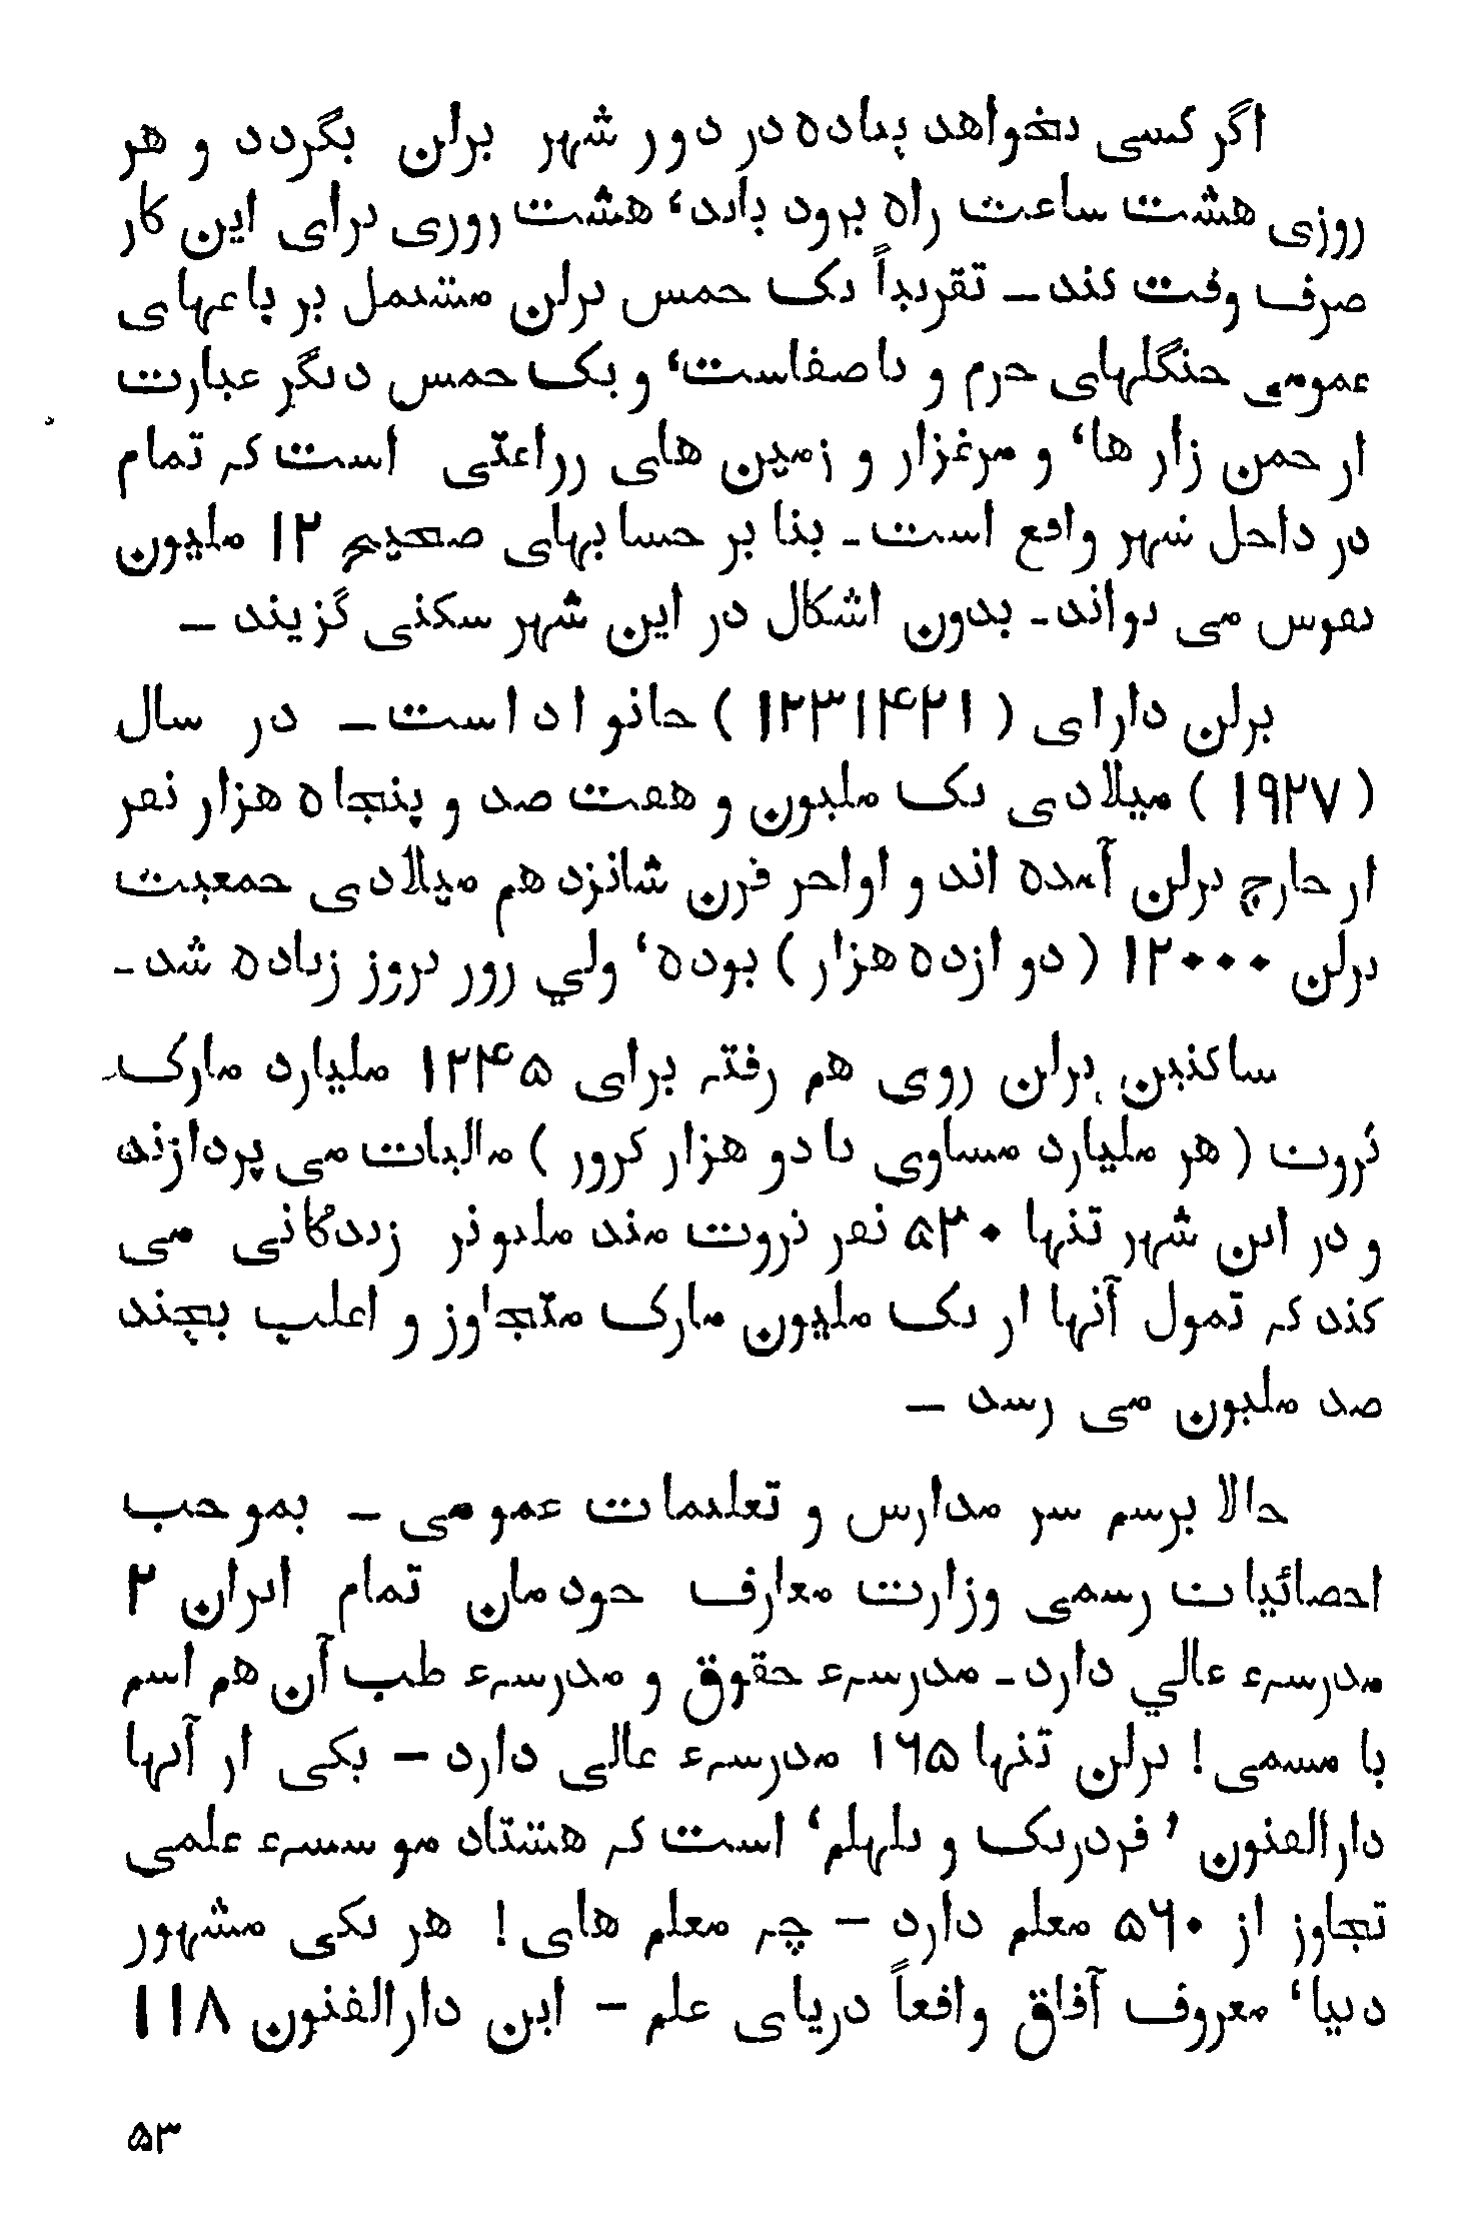 اگر کسی بخواهد پیاده در دور شهر برلن بگردد و هر
روزی هشت ساعت راه برود باید، هشت روزی برای این کار
صرف وقت کند ـ تقریباً یک خمس برلن مشتمل بر باغهای
عمومی جنگلهای خرم و باصفاست، و یک خمس دیگر عبارت
از چمن زار ها، و مرغزار و زمین های زراعتی است که تمام
در داخل شهر واقع است ـ بنا بر حسابهای صحیح ۱۲ ملیون
نفوس می تواند ـ بدون اشکال در این شهر سکنی گزیند ـ
برلن دارای ( ۱۲۳۱۴۲۱ ) خانواد است ـ در سال
( ۱۹۲۷ ) میلادی یک ملیون و هفت صد و پنجاه هزار نفر
از خارج برلن آمده اند و اواخر قرن شانزدهم میلادی جمعیت
برلن ۱۲۰۰۰ ( دوازده هزار ) بوده، ولي روز بروز زیاده شد ـ
ساکنین برلن روی هم رفته برای ۱۲۴۵ ملیارد مارک
ثروت ( هر ملیارد مساوی با دو هزار کرور ) مالیات می پردازند
و در این شهر تنها ۵۳۰ نفر ثروت مند ملیونر زندگانی می
کند که تمول آنها از یک ملیون مارک متجاوز و اغلب بچند
صد ملیون می رسد ـ
حالا برسم سر مدارس و تعلیمات عمومی ـ بموجب
احصائیات رسمی وزارت معارف خودمان تمام ایران ۲
مدرسهء عالي دارد ـ مدرسهء حقوق و مدرسهء طب آن هم اسم
با مسمی ! برلن تنها ۱۶۵ مدرسهء عالی دارد ـ یکی از آنها
دارالفنون ’ فردریک و یلهلم‘ است که هشتاد مو سسهء علمی
تجاوز از ۵۶۰ معلم دارد ـ چه معلم های ! هر یکی مشهور
دنیا، معروف آفاق واقعاً دریای علم ـ این دارالفنون ۱۱۸
۵۳